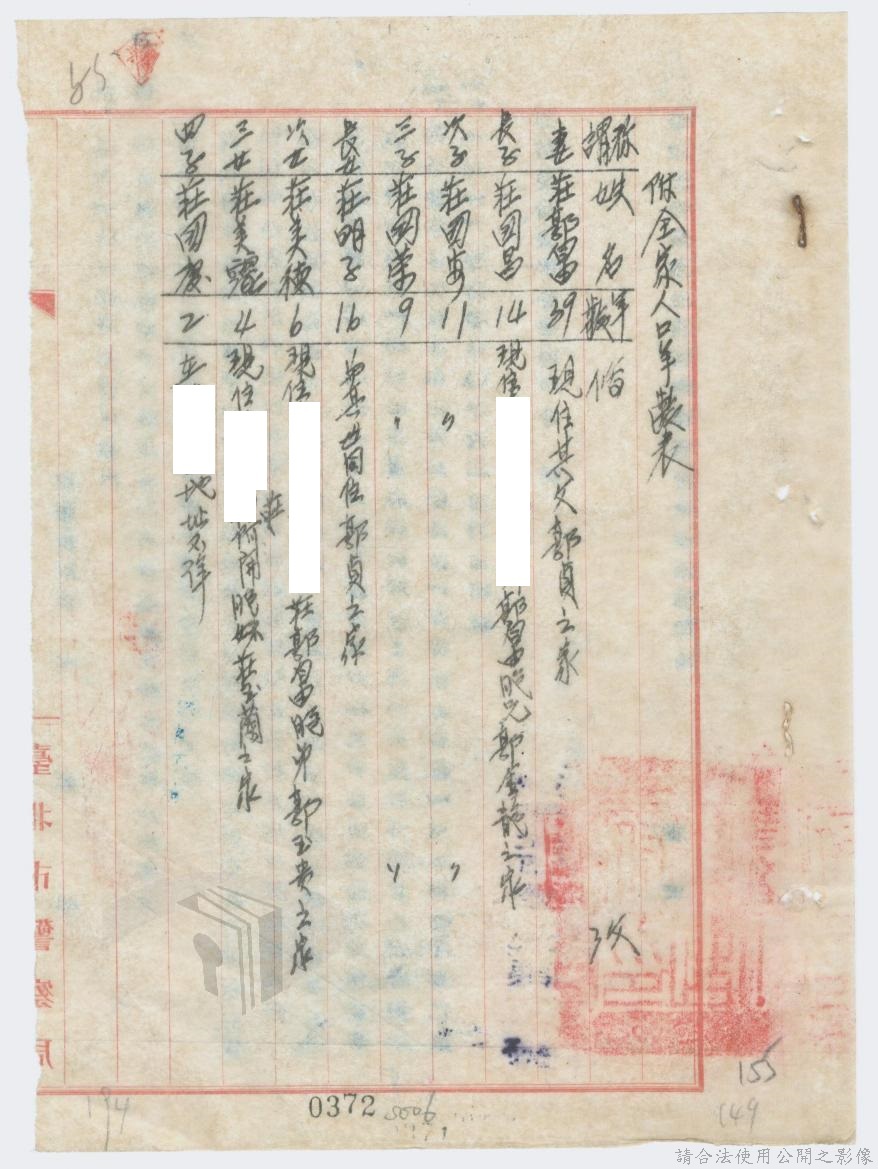 附全家人口年歲表
稱謂 姓名 年歲 備 攷
妻 莊郭富 39 現住其父郭貞之家
長子 莊國昌 14 現住 郭富胞兄郭金龍之家
次子 莊國安 11 〃 〃
三子 莊國榮 9 〃 〃
長女 莊明子 16 與其母同住郭貞之家
次女 莊美 6 現住 莊郭富胞弟郭玉貴之家
三女 莊美 4 現住 莊 胞妹莊玉蘭之家
四子 莊國慶 2 在 地址不詳
臺北市警察局
0372
5006
155
149
194
請合法使用公開之影像